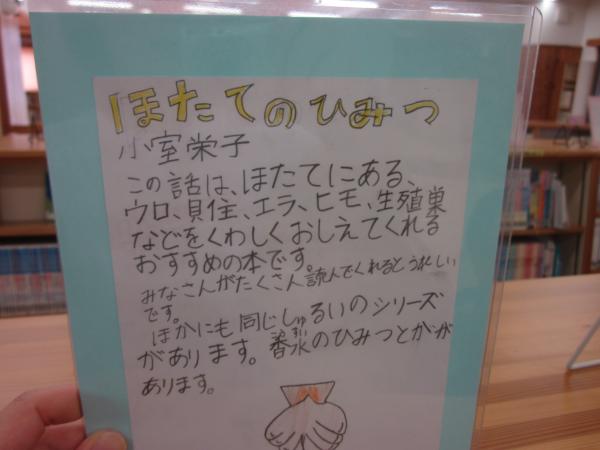 ほたてのひみつ
小室栄子
この話は、ほたてにある、
ウロ、貝住、エラ、ヒモ、生殖巣
などをくわしくおしえてくれる
おすすめの本です。
みなさんがたくさん読んでくれるとうれしい
です。
ほかにも同じしゅるいのシリーズ
があります。香水のひみつとかが
あります。